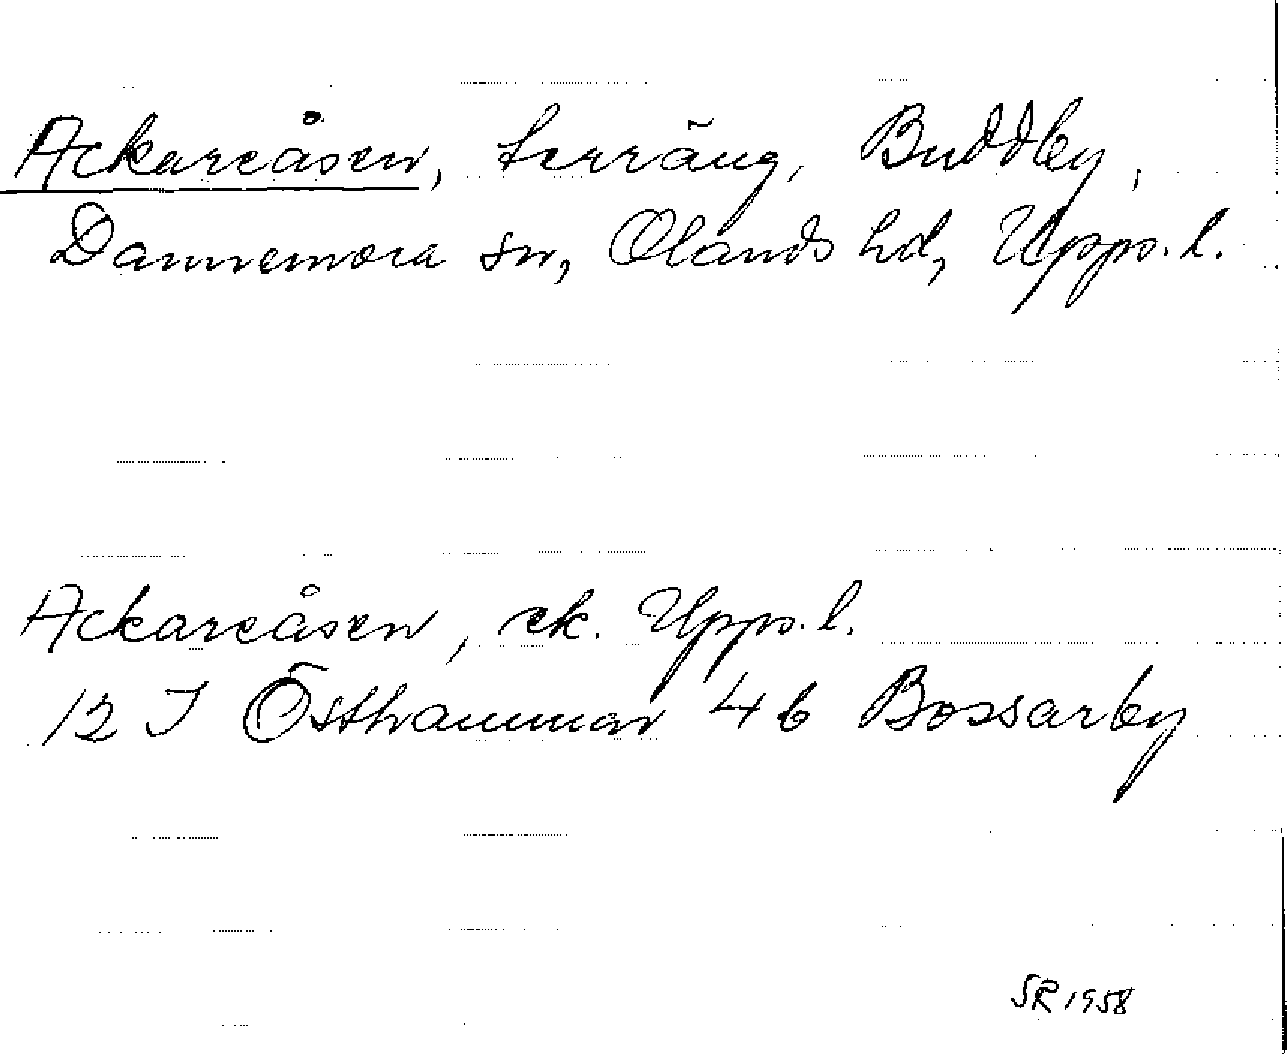 Ackareåsen, terräng, Buddby,
Dannemora sn, Olands hd, Upps. l.
Ackareåsen, ek. Upps. l.
12 I Östhammar 4 b Bossarby
SR 1958